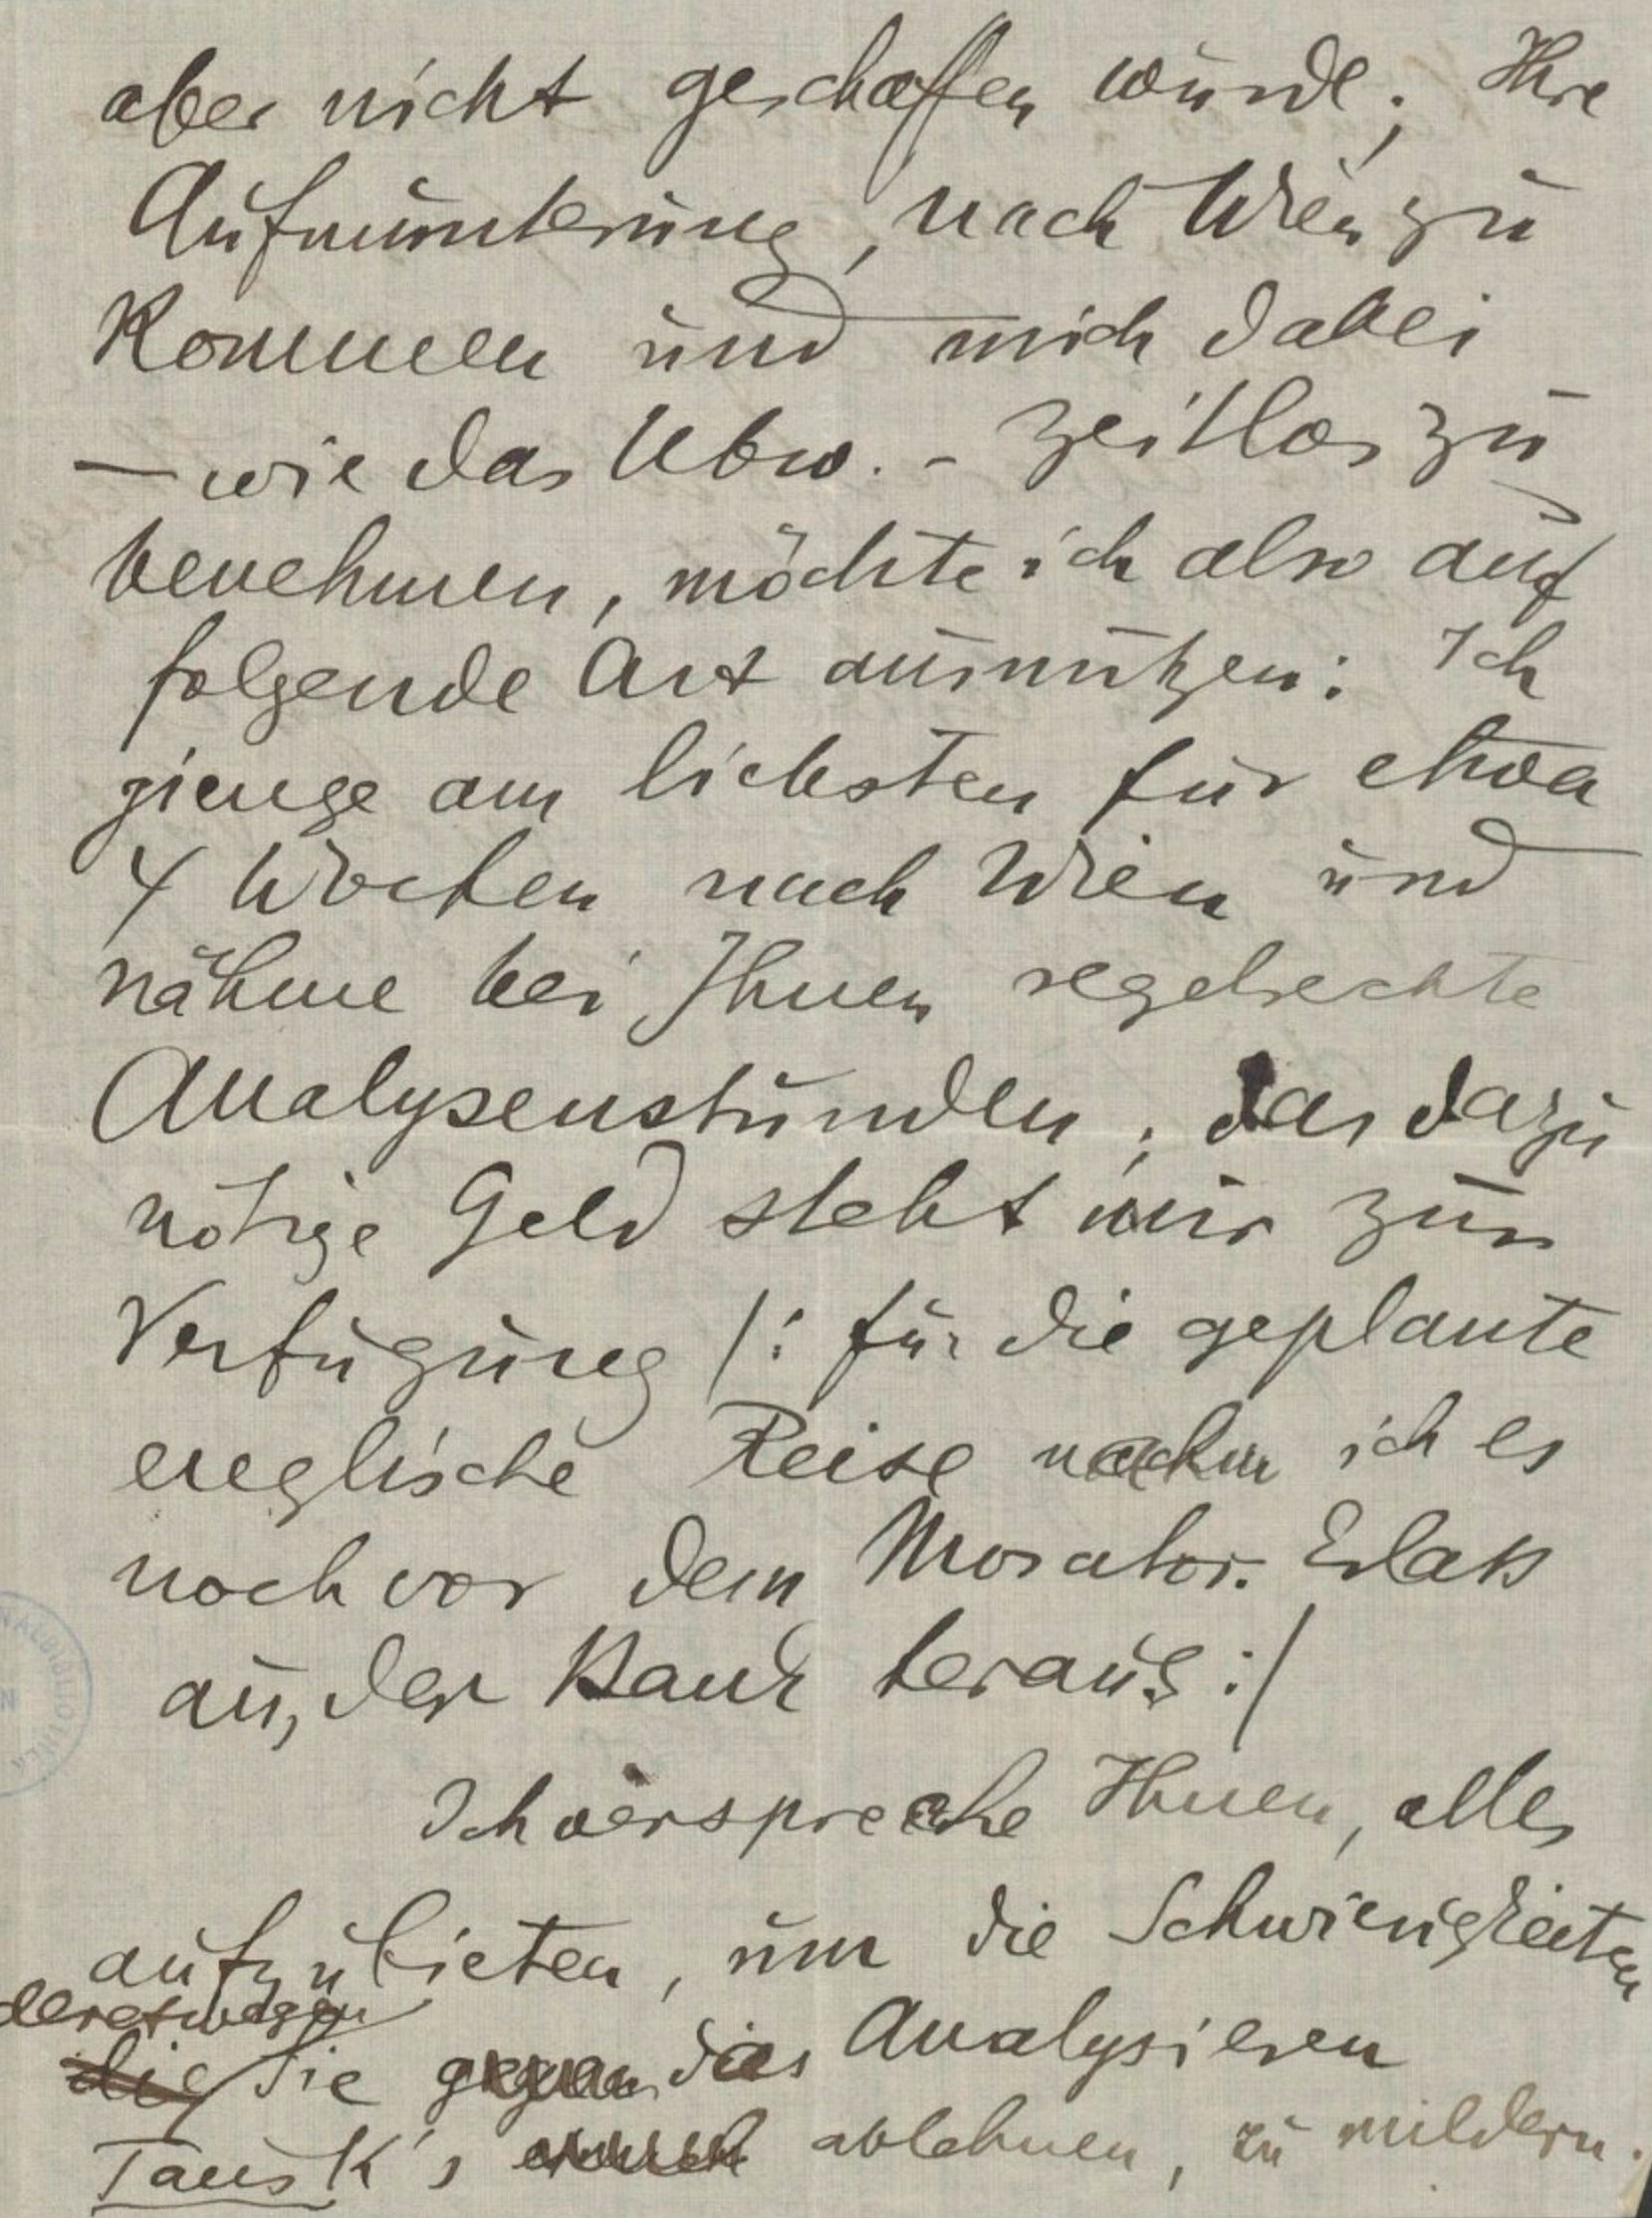 aber nicht geschaffen würde; Ihre
Aufmunterung, nach Wien zu
kommen und mich dabei
– wie das Ubw. – zeitlos zu
benehmen, möchte ich also auf
folgende Art ausnützen: Ich
gienge am liebsten für etwa
4 Wochen nach Wien und
nähme bei Ihnen regelrechte
Analysenstunden; das dazu
nötige Geld steht mir zur
Verfügung /: für die geplante
englische Reise nahm ich es
noch vor dem Morator. Erlass
aus der Bank heraus :/
Ich verspreche Ihnen, alles
aufzubieten, um die Schwierigkeiten
deretwegen
die Sie gegen das Analysieren
Tausk's ablehnen, zu mildern.